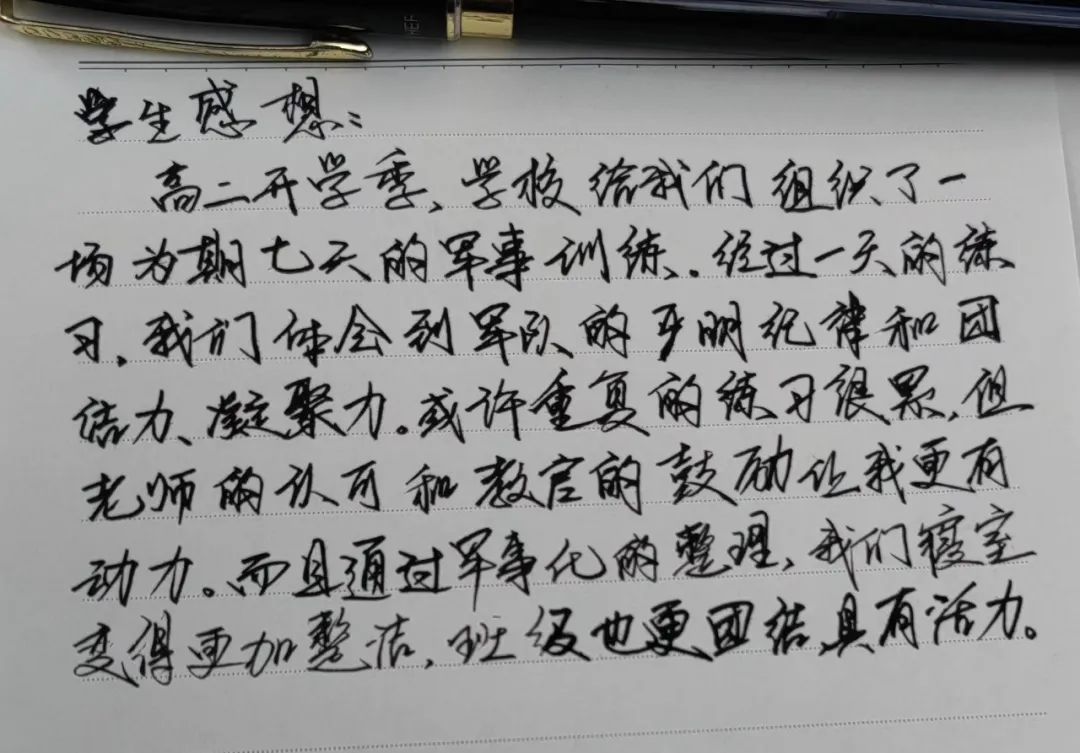 学生感想：
高二开学季，学校给我们组织了一
场为期七天的军事训练。经过一天的练
习，我们体会到军队的严明纪律和团
结力、凝聚力。或许重复的练习很累，但
老师的认可和教官的鼓励让我更有
动力。而且通过军事化的整理，我们寝室
变得更加整洁，班级也更团结具有活力。